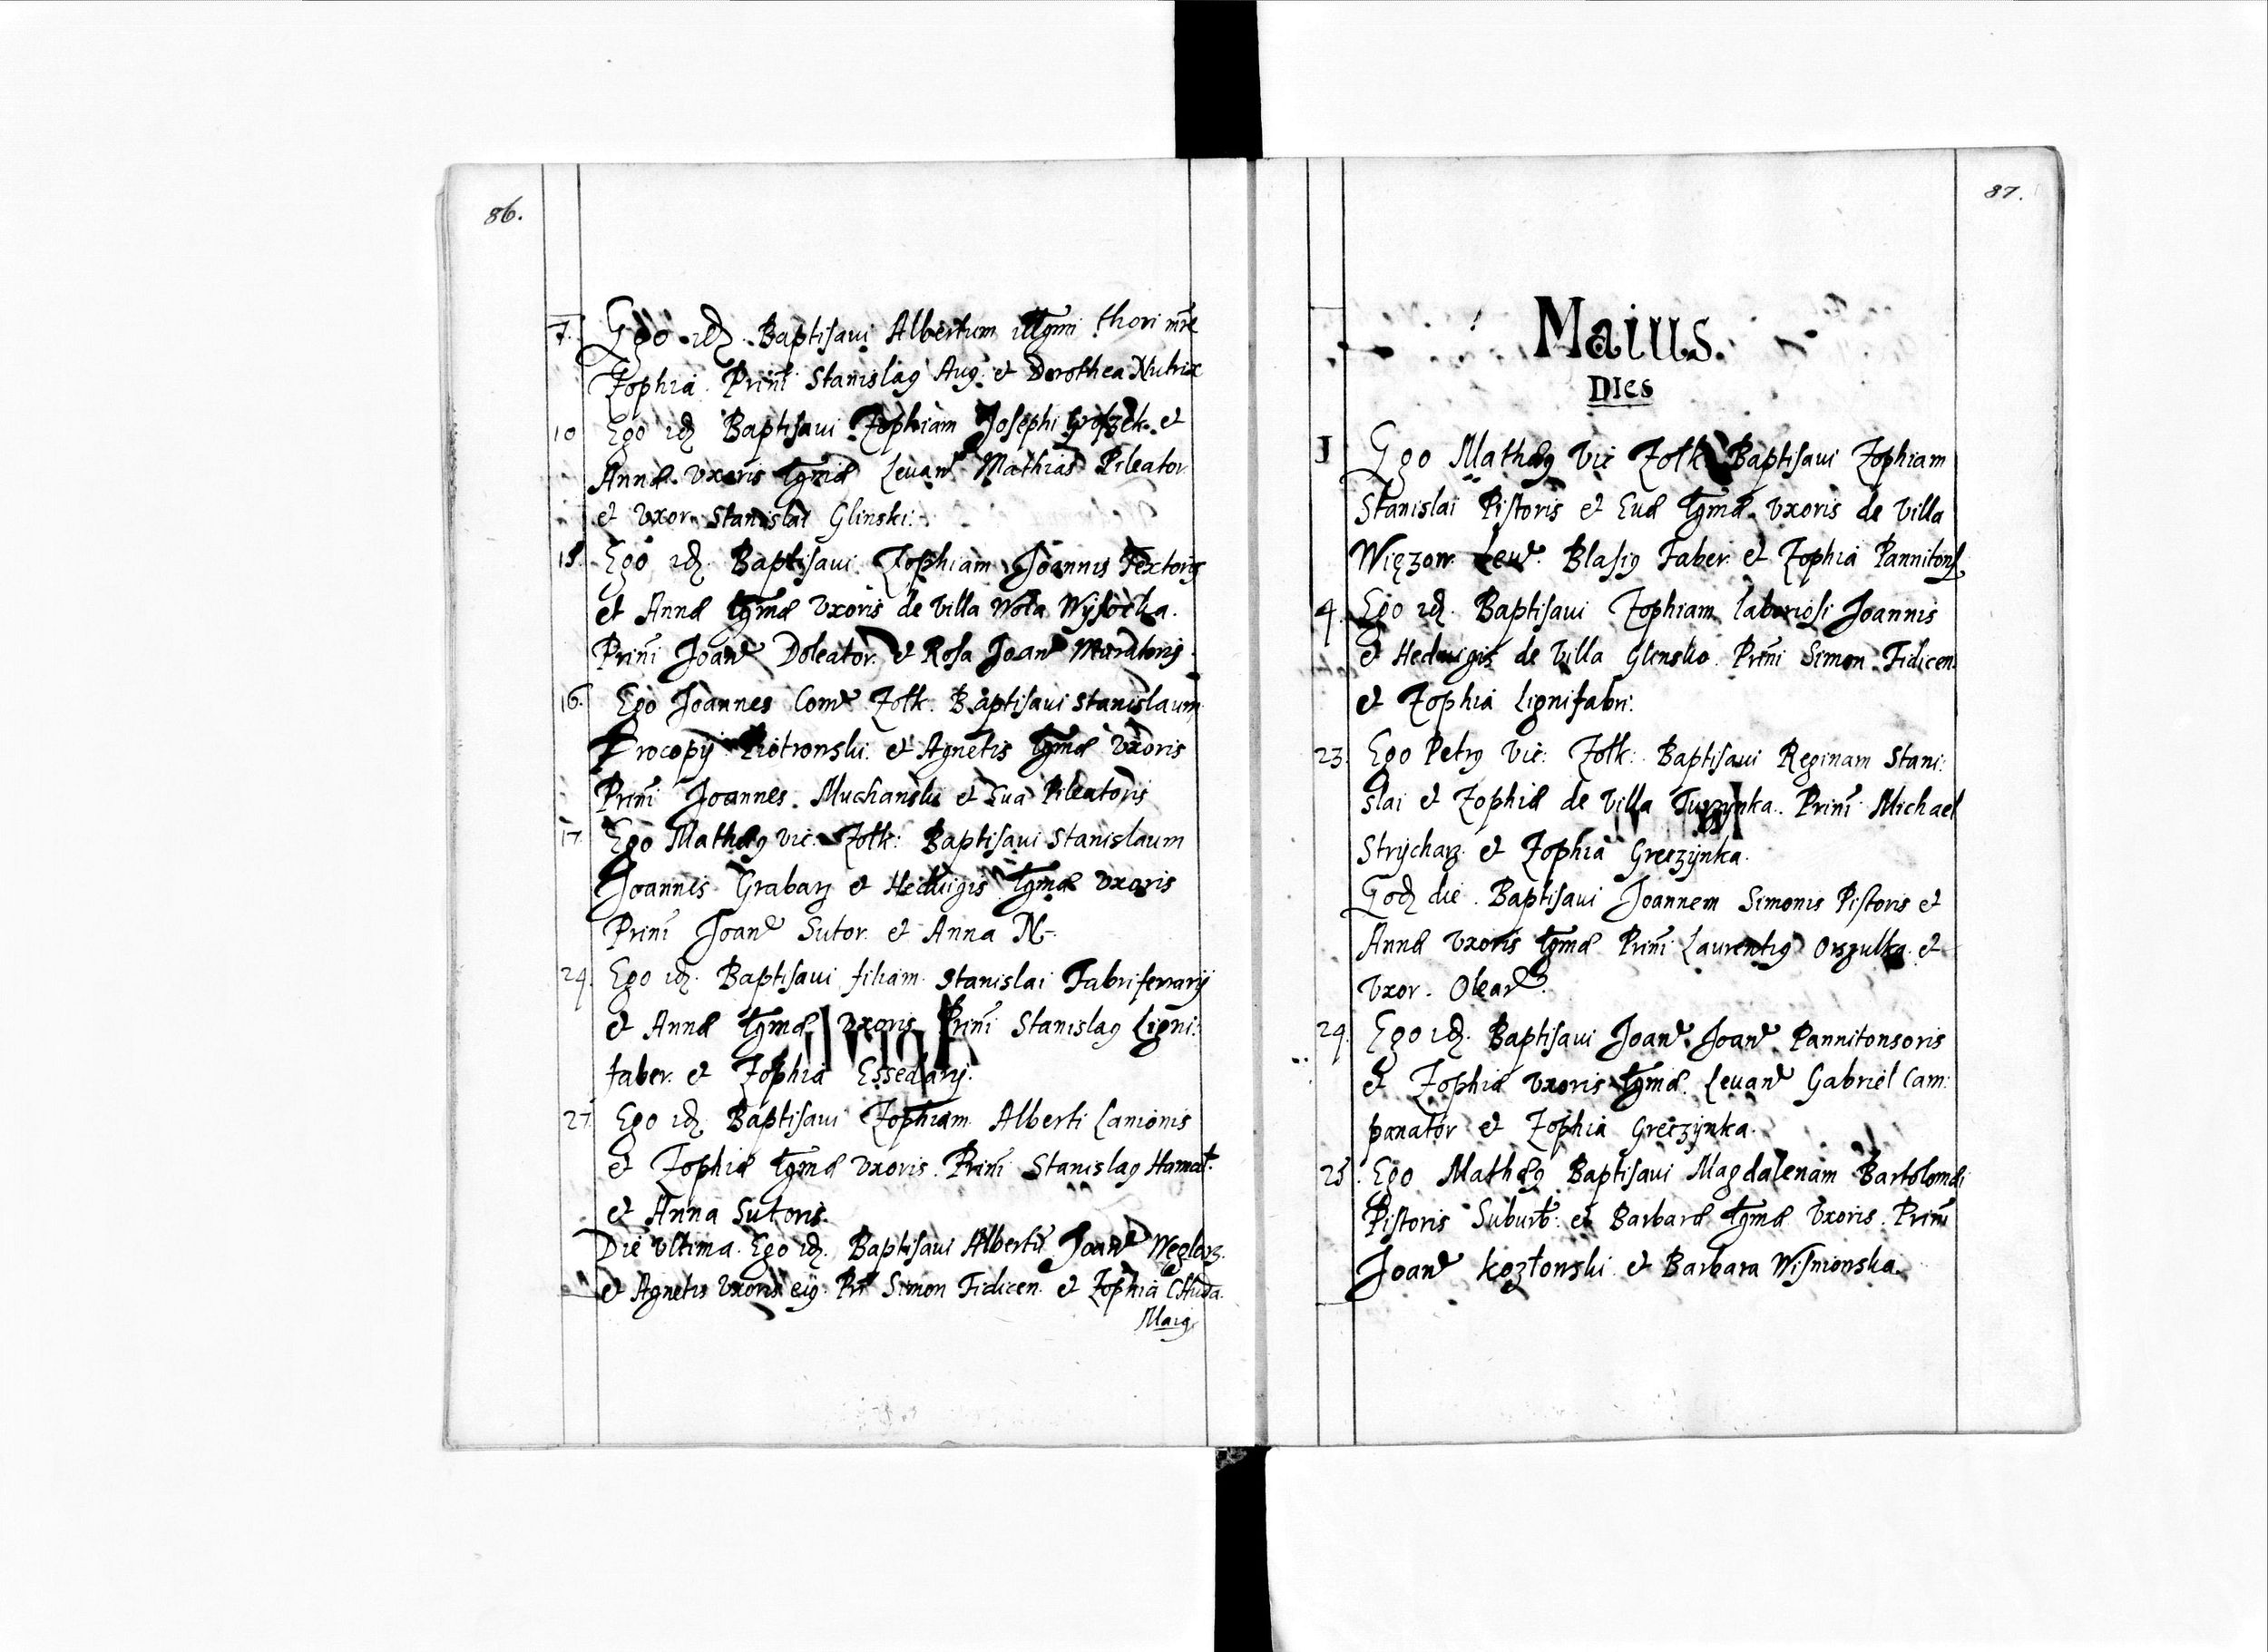 86.
7. Ego idẽ. Baptisaui Albertum illgmi thori mre
Zophia. Prini Stanislaꝰ Aug. et Dorothea Nutrix
10 Ego idẽ Baptisaui Zophiam Josephi Groszek. et
Annæ vxoris lgmæ Leuan Mathias Pileator
et Vxor Stanislai Glinski.
15. Ego idẽ. Baptisaui Zophiam Joannis Textoris
et Annæ lgmæ Vxoris de Villa Wola Wysocka.
Prini Joañ Doleator. et Rosa Joañ Muratoris.
16. Ego Joannes Com Zolk. Baptisaui Stanislaum
Procopij Piotrowski et Agnetis lgmæ Vxoris
Prini Joannes Muchanski et Eua Pileatoris
17. Ego Mathæꝰ Vic. Zolk: Baptisaui Stanislaum
Joannis Grabarz et Heduigis lgmæ vxoris
Prini Joañ Sutor. et Anna N.
24. Ego idẽ. Baptisaui filiam Stanislai Fabriferrarij
et Annæ lgmæ vxoris Prini Stanislaꝰ Ligni:
faber. et Zophia Essedarij.
27. Ego idẽ Baptisaui Zophiam Alberti Lanionis
et Zophiæ lgmæ vxoris. Prini Stanislaꝰ Hamat.
et Anna Sutoris.
Die Vltima. Ego idẽ. Baptisaui Albertũ Joañ Węglarz.
et Agnetis Vxoris eiꝰ. Pri Simon Fidicen. et Zophia
Maiꝰ
87.
Maius.
Dies
1 Ego Mathæꝰ Vic Zolk. Baptisaui Zophiam
Stanislai Pistoris et Euæ lgmæ. vxoris de Villa
Więzow. Leu. Blasiꝰ Faber. et Zophia Pannitons
4. Ego idẽ. Baptisaui Zophiam laboriosi Joannis
et Heduigis de Villa Glinsko. Prini Simon Fidicen.
et Zophia Lignifabri.
23. Ego Petrꝰ Vic: Zolk: Baptisaui Reginam Stani:
slai et Zophiæ de Villa Turzynka. Prini Michael
Strycharz. et Zophia Greczynka.
Eodẽ die. Baptisaui Joannem Simonis Pistoris et
Annæ Vxoris lgmæ Prini Laurentiꝰ Orszulka. et
Vxor. Olear.
24. Ego idẽ. Baptisaui Joañ Joañ Pannitonsoris
et Zophiæ vxoris lgmæ. Leuan Gabriel Cam:
panator et Zophia Greczynka.
25. Ego Mathæꝰ Baptisaui Magdalenam Bartolomæi
Pistoris Suburb: et Barbaræ lgmæ Vxoris. Prini
Joañ Kozłowski et Barbara Wisniowska.